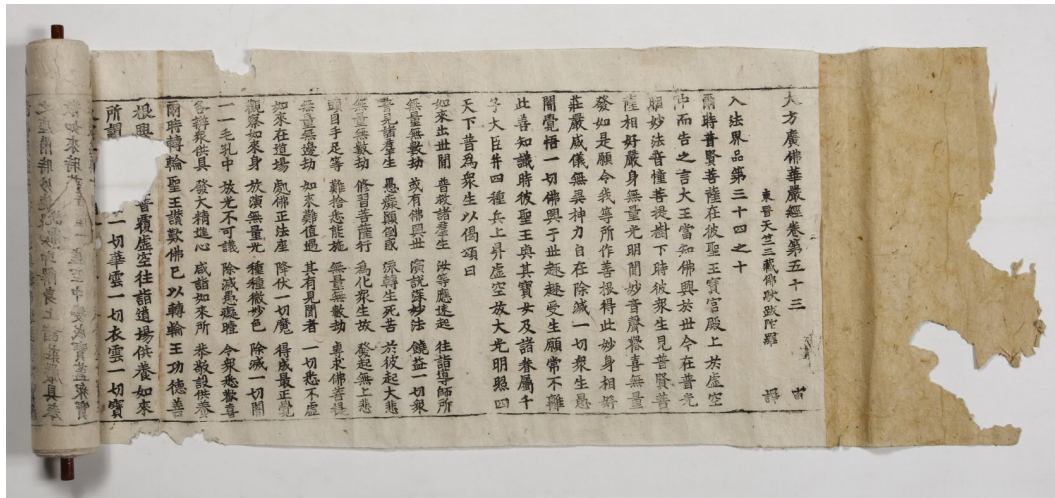 大方廣佛華嚴經卷第五十三 宙
東晉天竺三藏佛馱跋陀羅 譯
入法界品第三十四之十
爾時普賢菩薩在彼聖王寶宮殿上於虛空
中而告之言大王當知佛興於世今在普光
明妙法音幢菩提樹下時彼衆生見普賢菩
薩相好嚴身無量光明聞妙音聲發喜無量
發如是願令我等所作善根得此妙身相好
莊嚴威儀無異神力自在除滅一切衆生愚
闇覺悟一切佛興于世趣趣受生願常不離
此善知識時彼聖王與其寶女及諸眷屬千
子大臣并四種兵上昇虛空放大光明照四
天下普為衆生以偈頌曰
如來出世間 普救諸羣生 汝等應速起 往詣導師所
無量無數劫 或有佛興世 演說深妙法 饒益一切衆
普見諸羣生 愚癡顛倒惑 流轉生死苦 於彼起大悲
無量無數劫 修習菩薩行 為化衆生故 發起無上悲
頭目手足等 難捨悉能施 無量無數劫 專求佛菩提
無量無邊劫 如來難值遇 其有見聞者 一切悉不虛
如來在道場 處佛正法座 降伏一切魔 得成最正覺
觀察如來身 放演無量光 種種微妙色 除滅一切闇
一一毛孔中 放光不可議 除滅愚癡曀 令衆悉歡喜
各辦衆供具 發大精進心 咸詣如來所 恭敬設供養
爾時轉輪聖王讚歎佛已以轉輪王功德善
根興 普覆虛空往詣道場供養如來
所謂 一切華雲一切衣雲一切寶